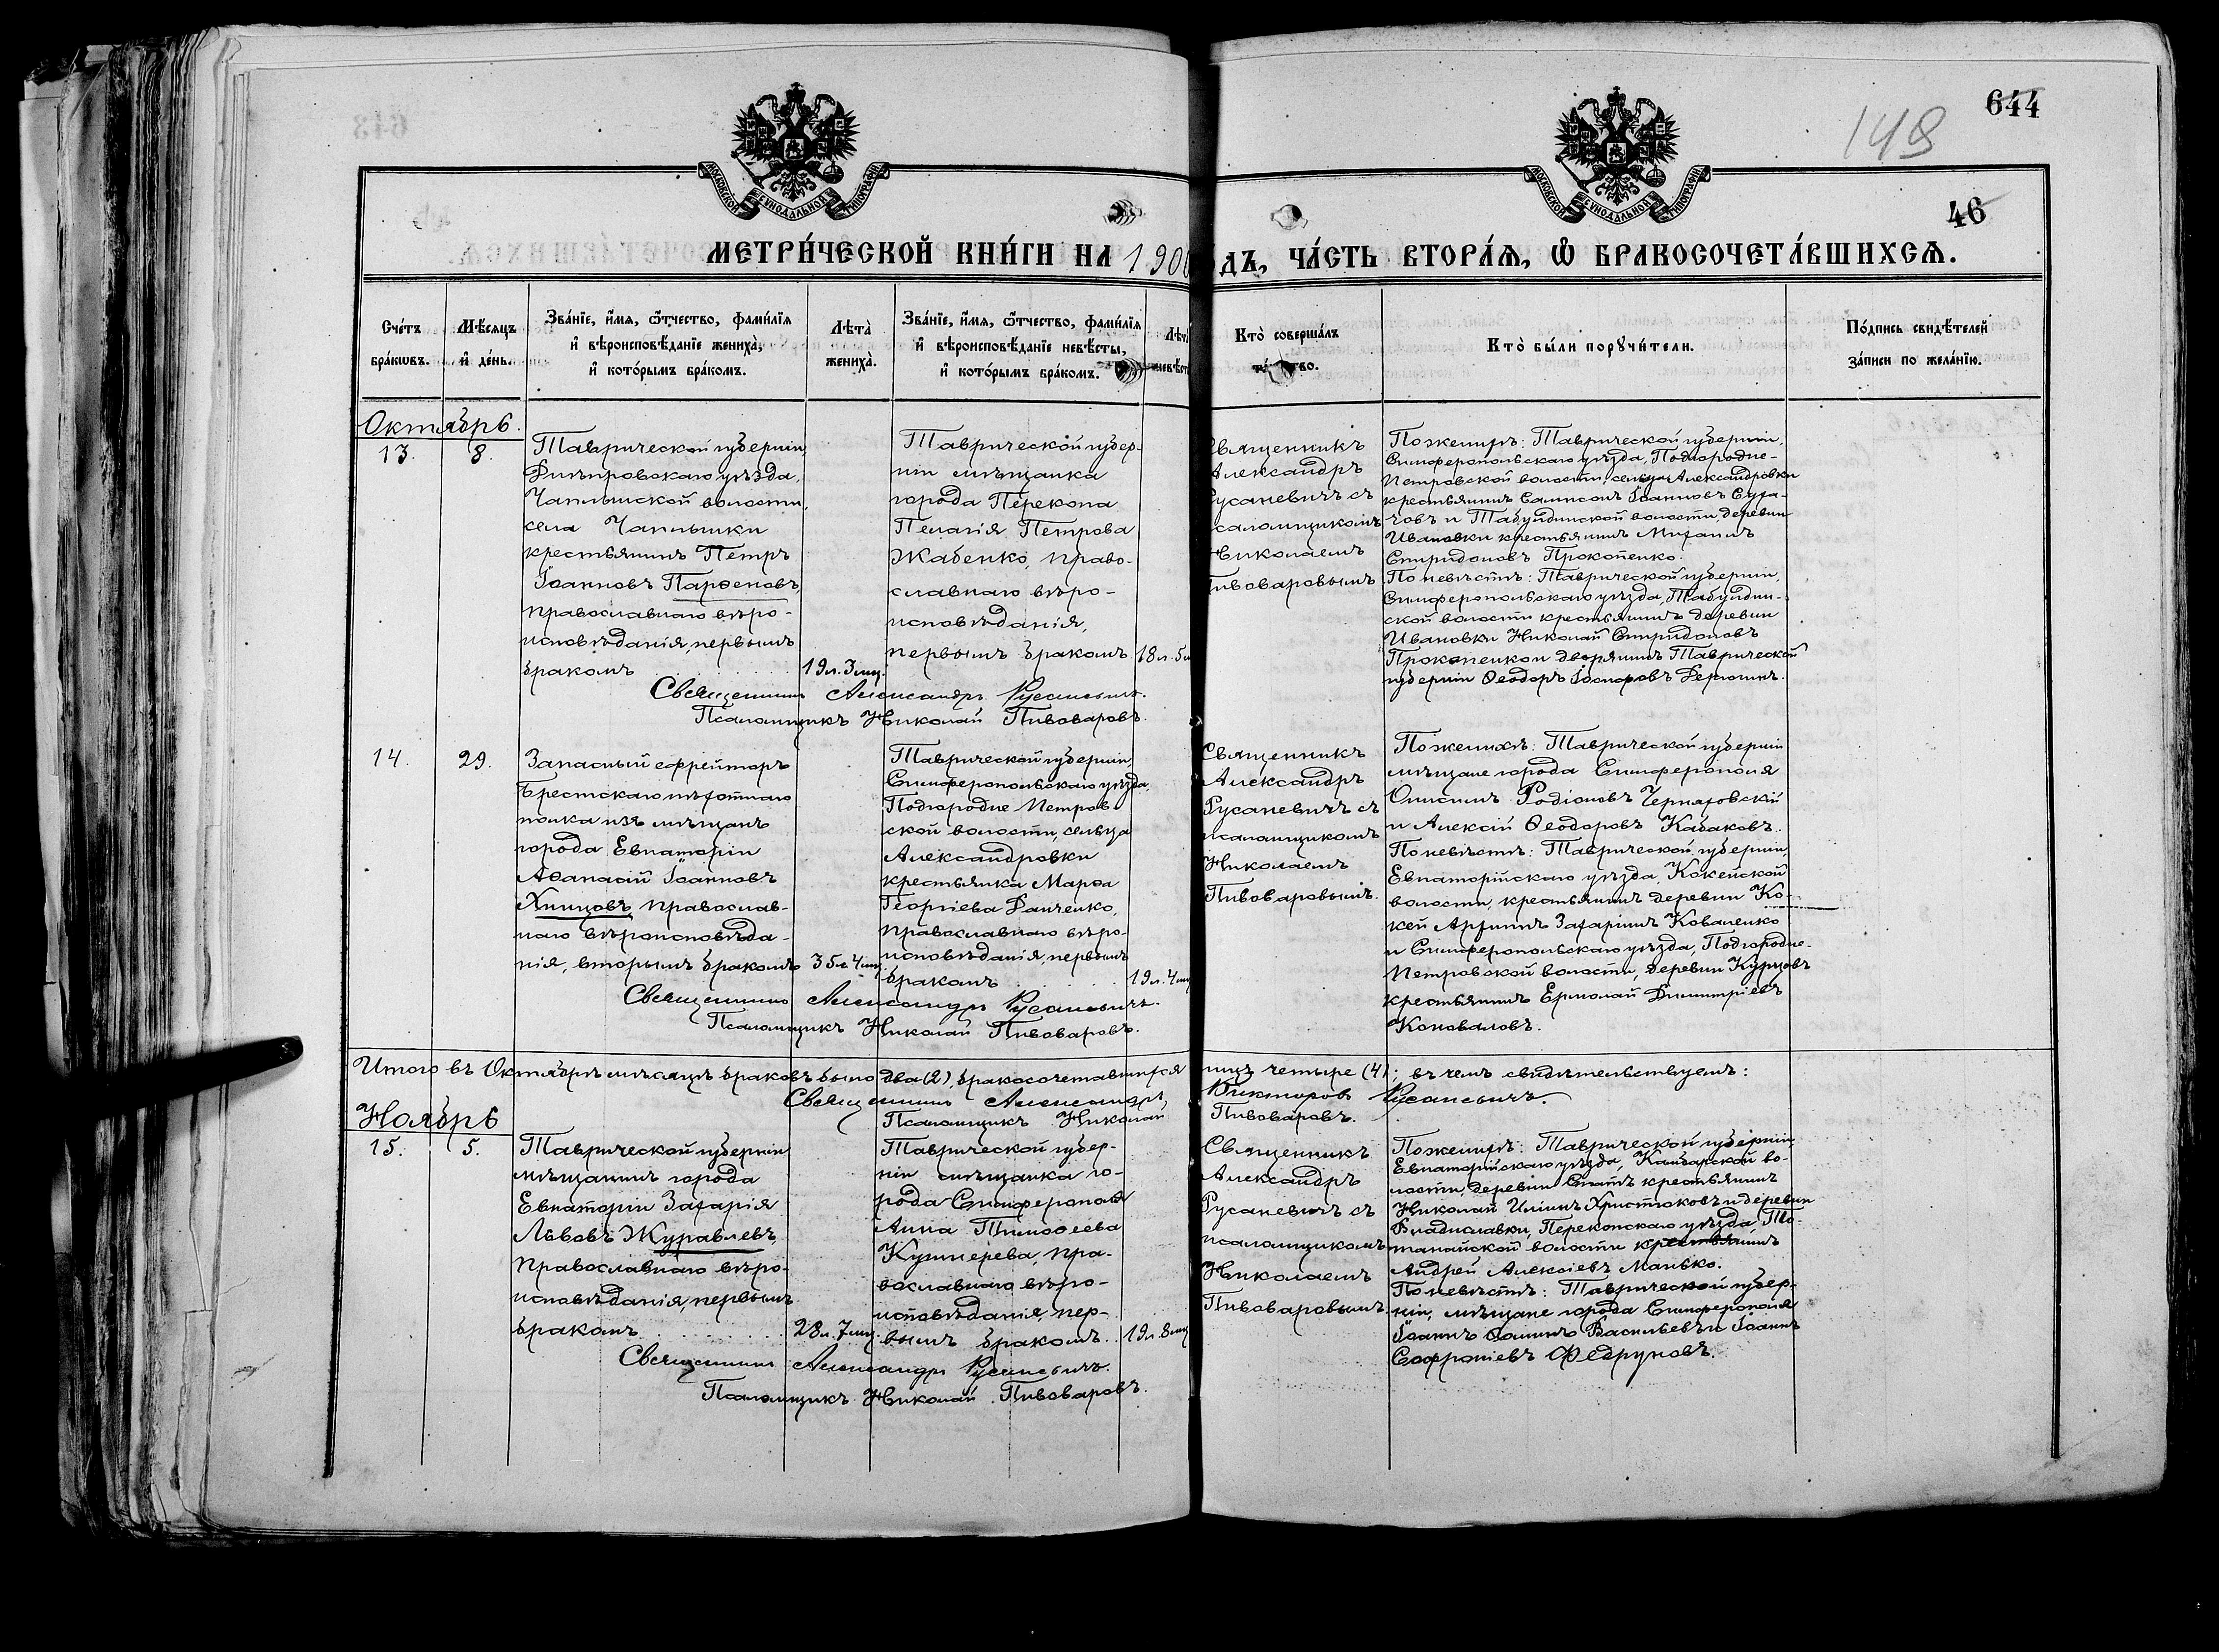 644
148
46
МОСКОВСКОЙ СѴНОДАЛЬНОЙ ТИПОГРАФІИ
МОСКОВСКОЙ СѴНОДАЛЬНОЙ ТИПОГРАФІИ
МЕТРИ́ЧЕСКОЙ КНИ́ГИ НА 1900
ДЪ, ЧА́СТЬ ВТОРА́Ѧ, Ѽ БРАКОСОЧЕТА́ВШИХСѦ.
Сче́тъ бра́кωвъ.
Мѣ́сѧцъ и҆ де́нь.
Зва́нїе, и҆́мѧ, ѻ҆́тчество, фами́лїѧ и҆ вѣроисповѣ́данїе жениха̀, и҆ кото́рымъ бра́комъ.
Лѣта̀ жениха̀.
Зва́нїе, и҆́мѧ, ѻ҆́тчество, фами́лїѧ и҆ вѣроисповѣ́данїе невѣ́сты, и҆ кото́рымъ бра́комъ.
Лѣта̀ невѣст
Кто̀ соверша́лъ
тво.
Кто̀ бы́ли порꙋчи́тели.
По́дпись свидѣ́телей за́писи по жела́нїю.
Октябрь.
13.
8.
Таврической губерніи,
Днѣпровскаго уѣзда,
Чаплынской волости,
села Чаплынки
крестьянинъ Петръ
Іоанновъ Парѳеновъ,
православнаго вѣро-
исповѣданія, первымъ
бракомъ
19л.3мц.
Таврической губер-
ніи мѣщанка
города Перекопа
Пелагія Петрова
Жабенко, право-
славнаго вѣро-
исповѣданія,
первымъ бракомъ
18л.5м
Священникъ Александръ Русаневичъ.
Псаломщикъ Николай Пивоваровъ.
Священникъ
Александръ
Русаневичъ съ
псаломщикомъ
Николаемъ
Пивоваровымъ
По женихѣ: Таврической губерніи,
Симферопольскаго уѣзда, Подгородне-
Петровской волости, сельца Александровки
крестьянинъ Сампсонъ Іоанновъ Суга-
човъ и Табулдинской волости, деревни
Ивановки крестьянинъ Михаилъ
Спиридоновъ Прокопенко.
По невѣстѣ: Таврической губерніи,
Симферопольскаго уѣзда, Табулдин-
ской волости крестьянинъ деревни
Ивановки Николай Спиридоновъ
Прокопенко и дворянинъ Таврической
губерніи Ѳеодоръ Іосифовъ
14.
29.
Запасный ефрейторъ
Брестскаго пѣхотнаго
полка изъ мѣщанъ
города Евпаторіи
Аѳанасій Іоанновъ
Хницовъ, православ-
наго вѣроисповѣда-
нія, вторымъ бракомъ
35л.4мц.
Таврической губерніи,
Симферопольскаго уѣзда,
Подгородне Петров
ской волости, сельца
Александровки
крестьянка Марѳа
Георгіева Данченко,
православнаго вѣро-
исповѣданія, первымъ
бракомъ
19л.4мц
Священникъ Александръ Русаневичъ.
Псаломщикъ Николай Пивоваровъ.
Священникъ
Александръ
Русаневичъ съ
псаломщикомъ
Николаемъ
Пивоваровымъ.
По женихѣ: Таврической губерніи
мѣщане города Симферополя
Онисимъ Родіоновъ Черняховскій
и Алексій Ѳеодоровъ Кабаковъ.
По невѣстѣ: Таврической губерніи,
Евпаторійскаго уѣзда, Кокейской
волости, крестьянинъ деревни Ко-
кей Архипъ Захаріинъ Коваленко
и Симферопольскаго уѣзда, Подгородне-
Петровской волости, деревни Курцовъ
крестьянинъ Ермолай Димитріевъ
Коноваловъ.
Итого въ Октябрѣ мѣсяцѣ браковъ было два (2), бракосочетавшихся
лицъ четыре (4); въ чемъ свидѣтельствуемъ:
Священникъ Александръ
Викторовъ Русаневичъ.
Псаломщикъ Николай
Пивоваровъ.
Ноябрь
15.
5.
Таврической губерніи
мѣщанинъ города
Евпаторіи Захарія
Львовъ Журавлевъ,
православнаго вѣро-
исповѣданія, первымъ
бракомъ
28л.7мц.
Таврической губер-
ніи мѣщанка го-
рода Симферополя
Анна Тимоѳеева
Кушнерева, пра-
вославнаго вѣро-
исповѣданія, пер-
вымъ бракомъ
19л.8мц
Священникъ Александръ Русаневичъ.
Псаломщикъ Николай Пивоваровъ.
Священникъ
Александръ
Русаневичъ съ
псаломщикомъ
Николаемъ
Пивоваровымъ.
По женихѣ: Таврической губерніи,
Евпаторійскаго уѣзда, Камбарской во-
лости, деревни крестьянинъ
Николай Ильинъ Христюковъ и деревни
Владиславки, Перекопскаго уѣзда, То-
танайской волости крестьянинъ
Андрей Алексіевъ Манько.
По невѣстѣ: Таврической губер-
ніи, мѣщане города Симферополя
Іоаннъ Ѳоминъ Васильевъ и Іоаннъ
Софроніевъ Федруновъ.